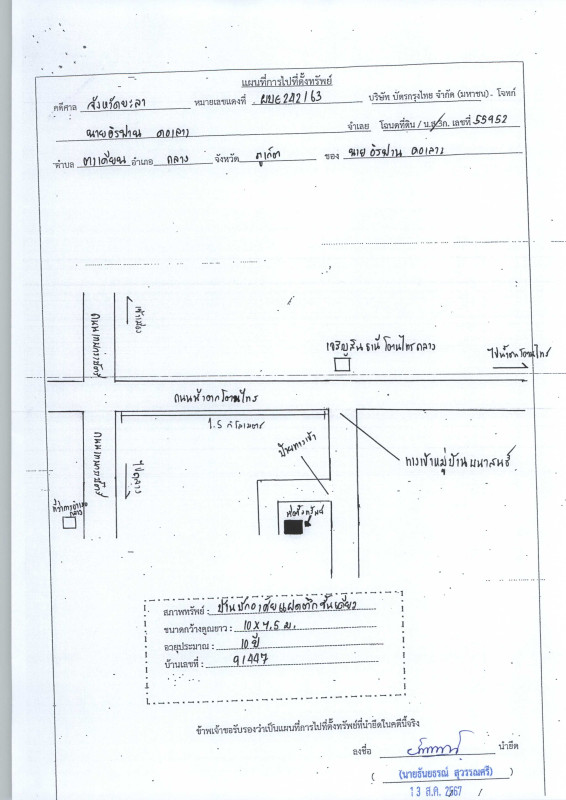 แผนที่การไปที่ตั้งทรัพย์
คดีศาล จังหวัดยะลา หมายเลขแดงที่ ผบE242/63 บริษัท บัตรกรุงไทย จำกัด (มหาชน) โจทก์
นายอิรฟาน ดอเลาะ จำเลย โฉนดที่ดิน / น.ส.3ก. เลขที่ 55952
ตำบล อำเภอ ถลาง จังหวัด ภูเก็ต ของ นายอิรฟาน ดอเลาะ
เข้าเมือง
ถนนเทพกระษัตรี
เจริญสินธานี โตนไทรถลาง
ไปน้ำตกโตนไทร
ถนนน้ำตกโตนไทร
1.5 กิโลเมตร
ป้ายทางเข้า
ทางเข้าหมู่บ้าน
ถนนเทพกระษัตรี
ไปถลาง
ที่ว่าการอำเภอ
ถลาง
ที่ตั้งทรัพย์
สภาพทรัพย์ : บ้านพักอาศัยแฝดตึกชั้นเดียว
ขนาดกว้างคูณยาว : 10 x 7.5 ม.
อายุประมาณ : 10 ปี
บ้านเลขที่ : 91/447
ข้าพเจ้าขอรับรองว่าเป็นแผนที่การไปที่ตั้งทรัพย์ที่นำยึดในคดีนี้จริง
ลงชื่อ นำยึด
(นายธันยธรณ์ สุวรรณศรี)
13 ส.ค. 2567